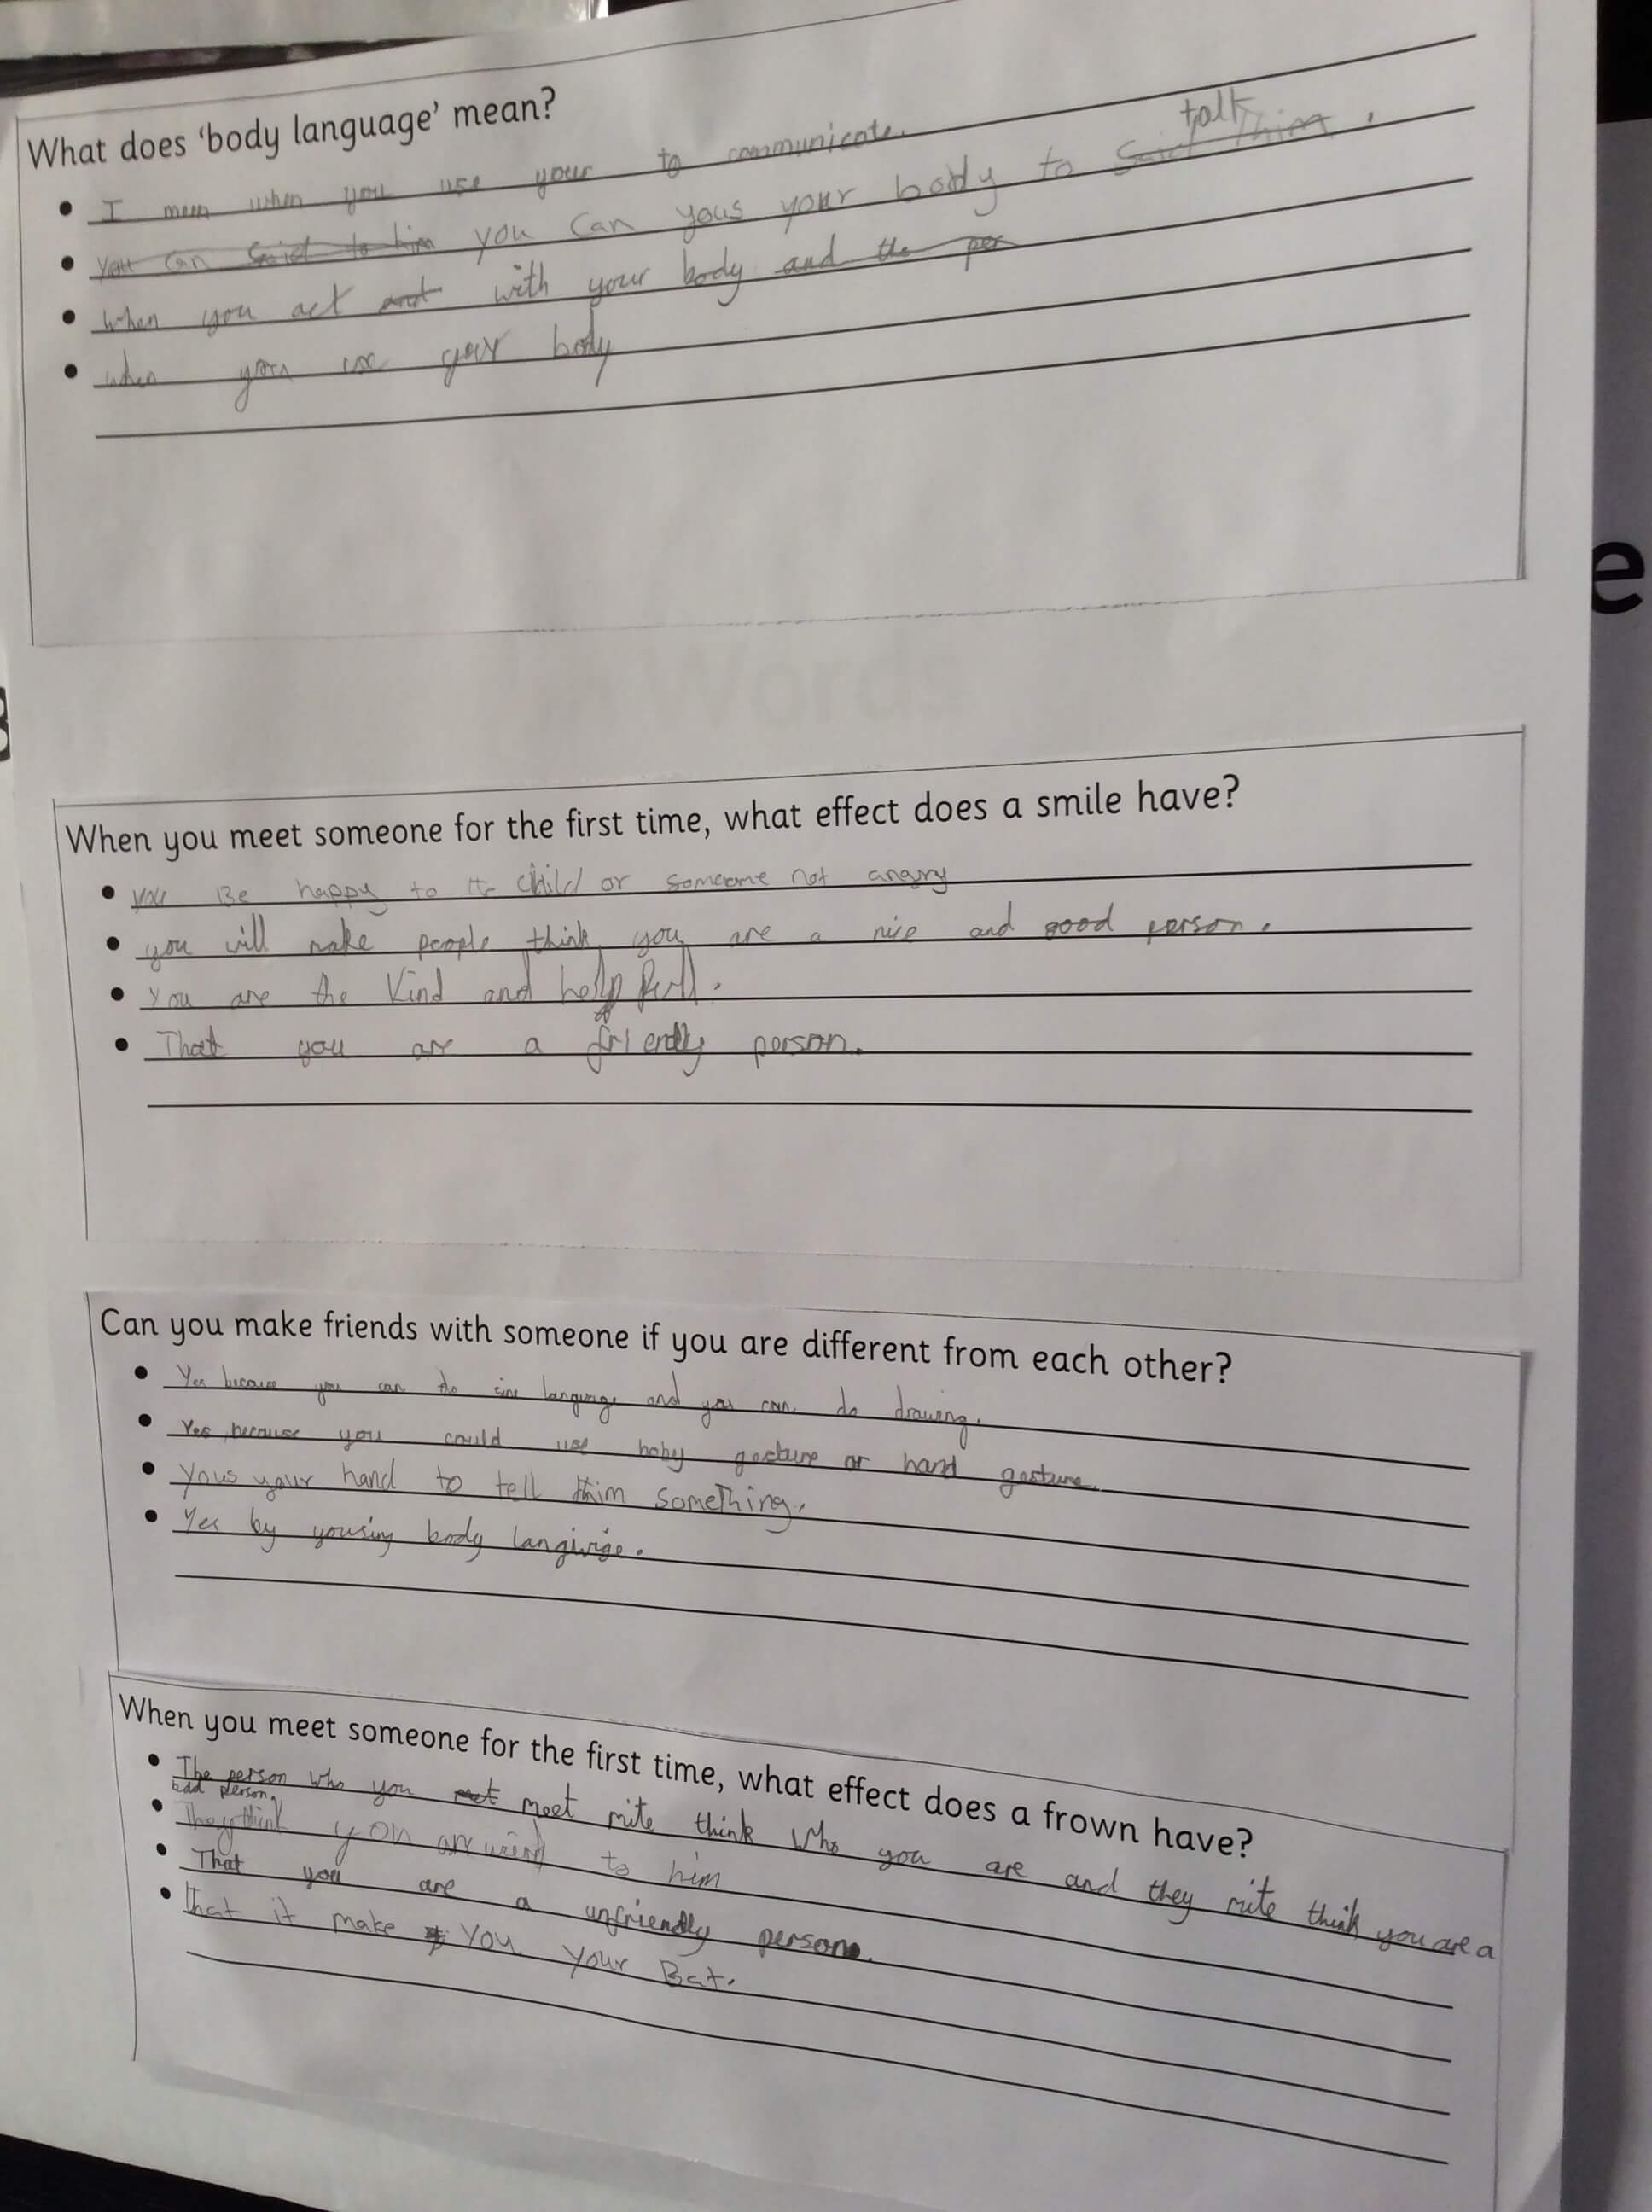 What does ‘body language’ mean?
• I mean when you use your to communicate.
talk
• you can said to him you can yous your body to said him.
• When you act and with your body and the per
• when you use your body
Words
When you meet someone for the first time, what effect does a smile have?
• you Be happy to child or someone not angry
• you will make people think you are a nice and good person.
• You are the Kind and help full.
• That you are a friendly person.
Can you make friends with someone if you are different from each other?
• Yes because you can do sine language and you can do drawing.
• Yes because you could use baby gesture or hand gesture.
• yous your hand to tell thim something.
• Yes by yousing body langwige.
When you meet someone for the first time, what effect does a frown have?
• The person who you met meet mite think who you are and they mite think you are a
bad person.
• they think you are to him
• That you are a unfriendly person.
• that it make you your Bat.
e